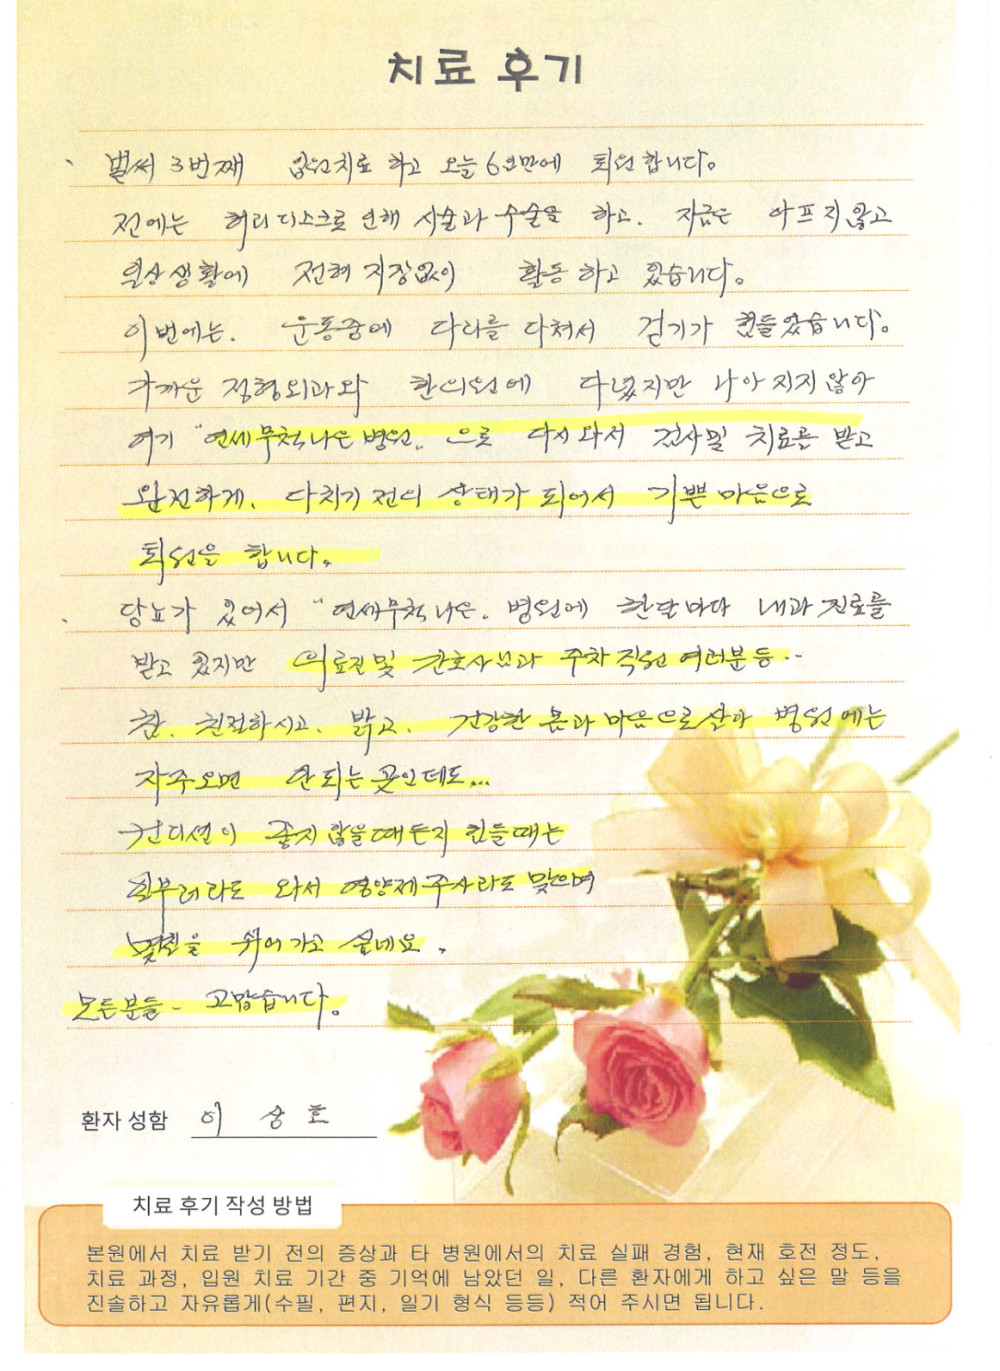 치료 후기
벌써 3번째 입원치료 하고 오늘 6일만에 퇴원합니다.
전에는 허리디스크로 인해 시술과 수술을 하고. 지금은 아프지 않고
일상생활에 전혀 지장없이 활동하고 있습니다.
이번에는. 운동중에 다리를 다쳐서 걷기가 힘들었습니다.
가까운 정형외과와 한의원에 다녔지만 나아지지 않아
여기 "연세무척나은병원" 으로 다시 와서 검사및 치료를 받고
완전하게. 다치기 전의 상태가 되어서 기쁜 마음으로
퇴원을 합니다.
당뇨가 있어서 "연세무척나은. 병원에 한달마다 내과 진료를
받고 있지만 의료진및 간호사님과 주차직원 여러분등..
참. 친절하시고. 밝고. 건강한 몸과 마음으로 살아 병원에는
자주오면 안되는 곳인데도...
컨디션이 좋지 않을때든지 힘들때는
일부러라도 와서 영양제주사라도 맞으며
몇일을 쉬어 가고 싶네요.
모든분들- 고맙습니다.
환자 성함 이 상 호
치료 후기 작성 방법
본원에서 치료 받기 전의 증상과 타 병원에서의 치료 실패 경험, 현재 호전 정도,
치료 과정, 입원 치료 기간 중 기억에 남았던 일, 다른 환자에게 하고 싶은 말 등을
진솔하고 자유롭게(수필, 편지, 일기 형식 등등) 적어 주시면 됩니다.